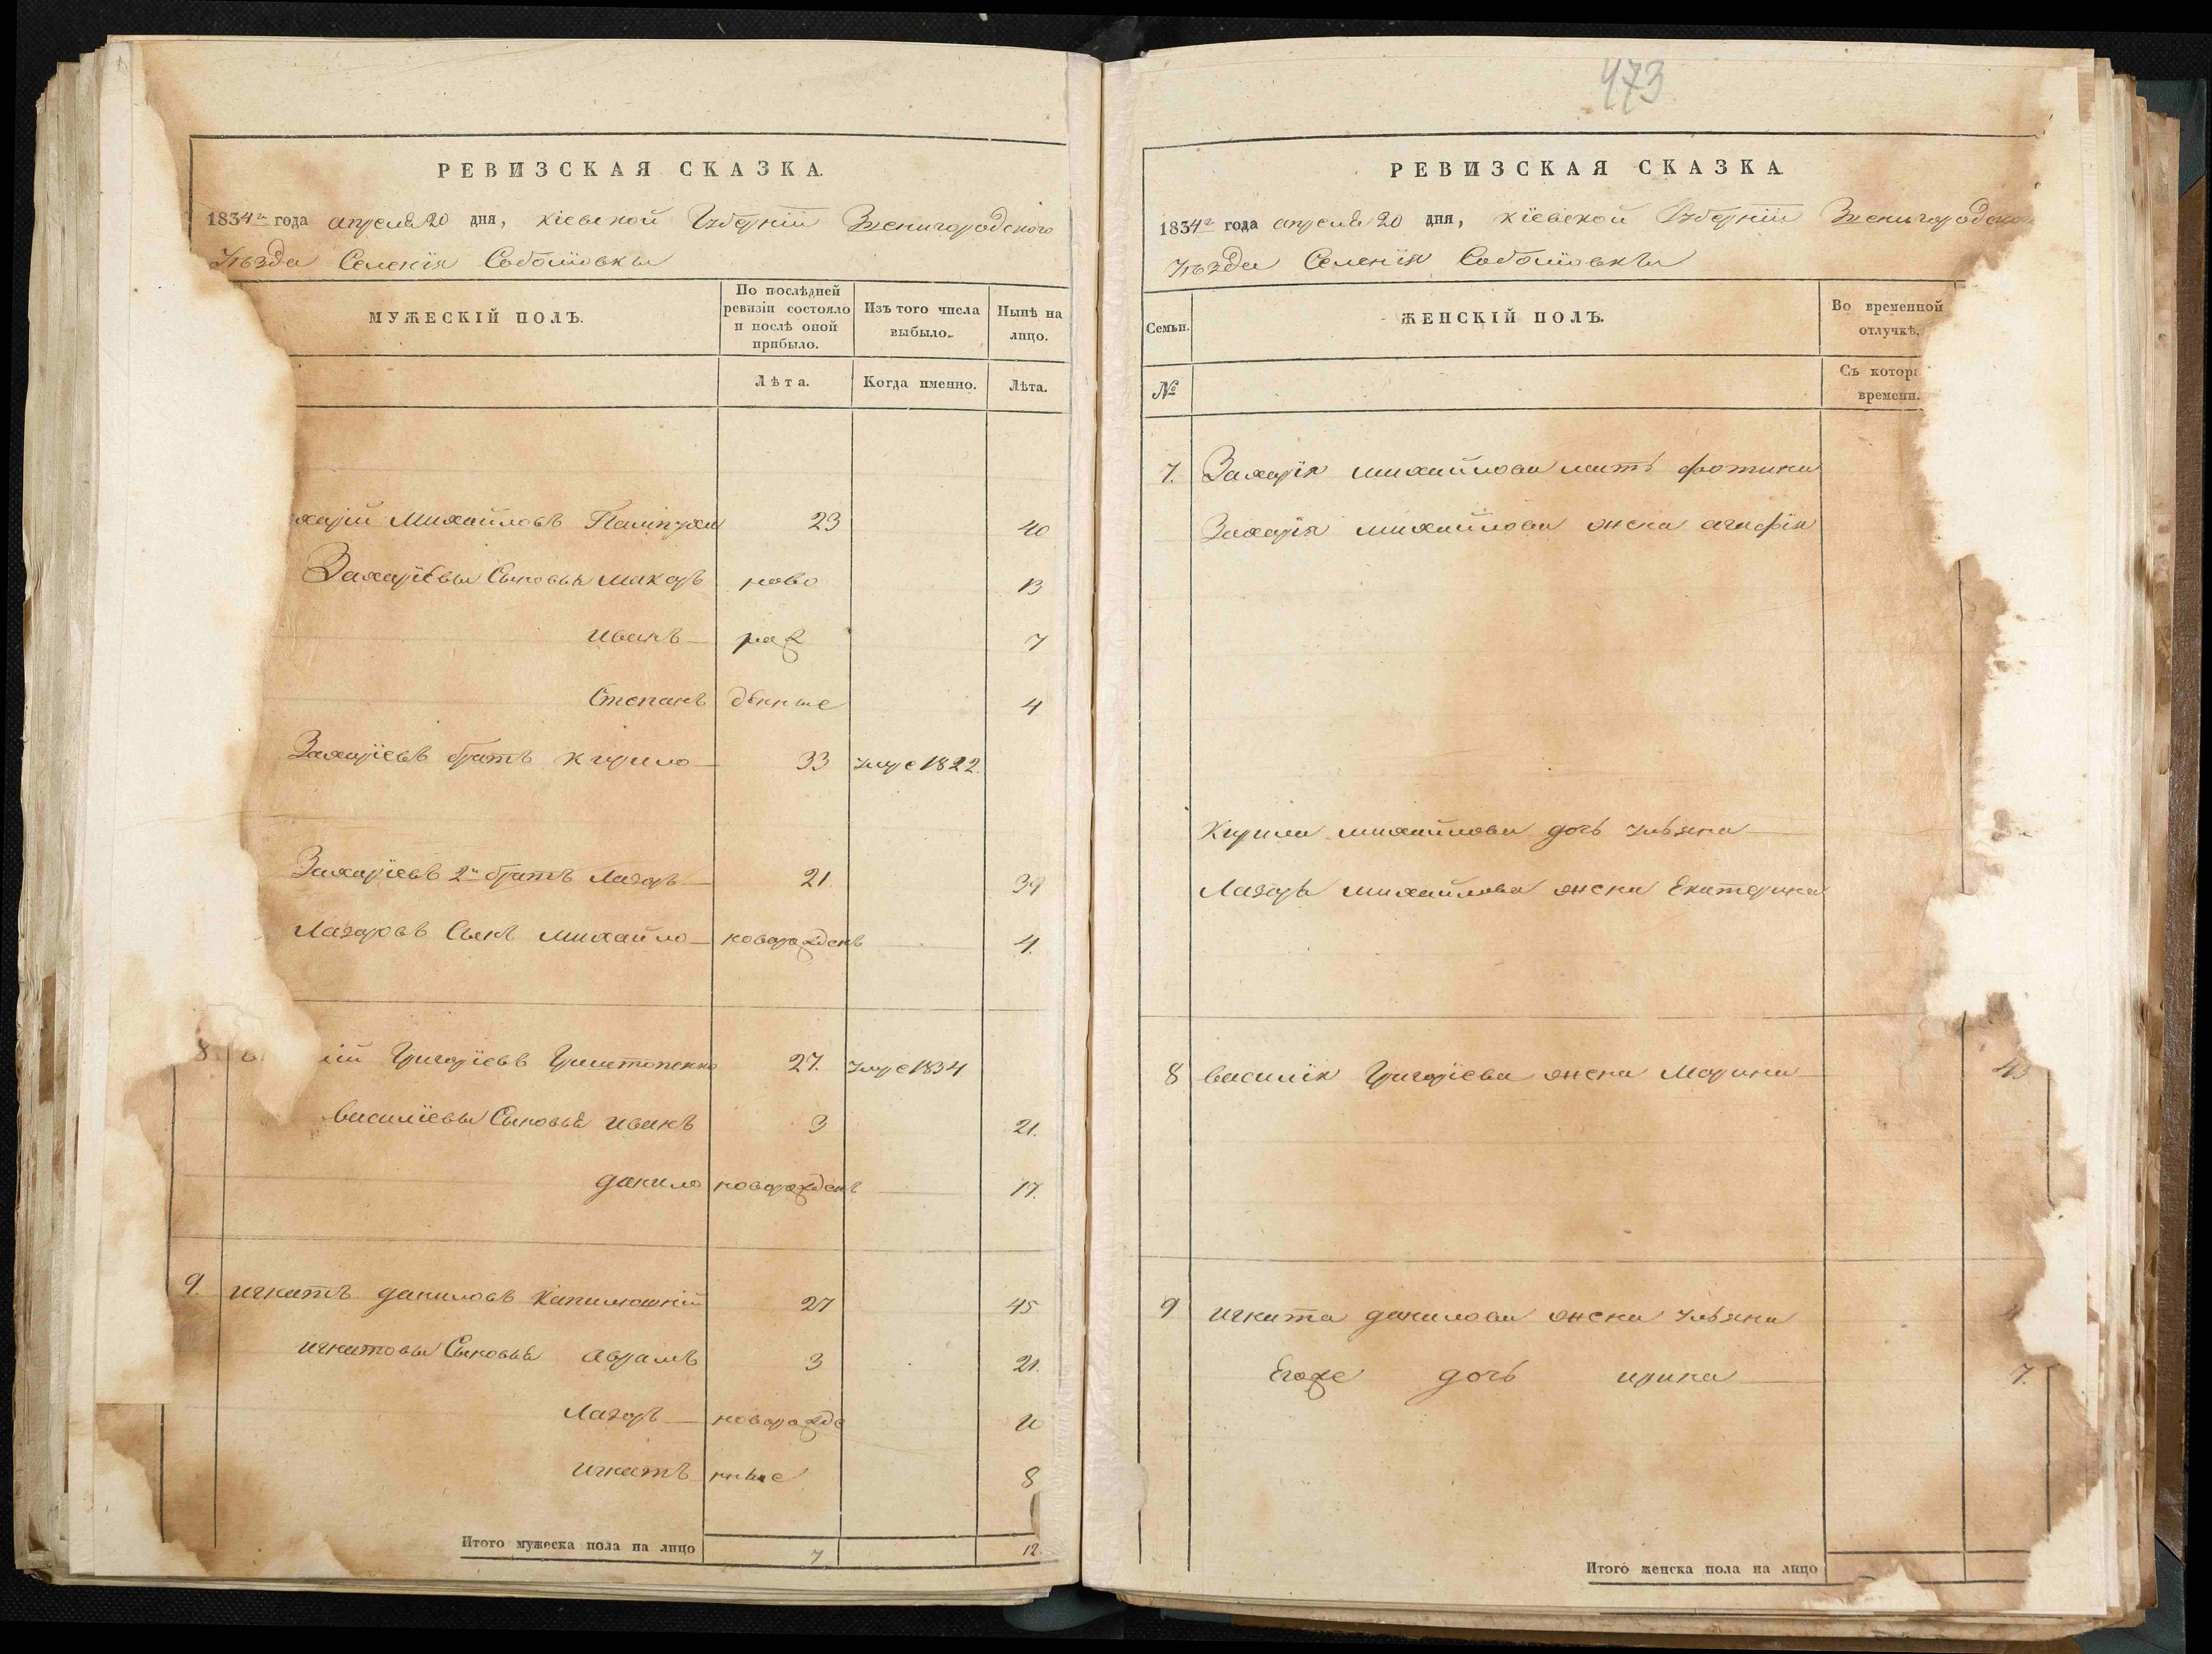 РЕВИЗСКАЯ СКАЗКА.
1834го года апреля 20 дня, Кіевской Губерніи Звенигородского
Уѣзда Селенія Соболіовки
МУЖЕСКІЙ ПОЛЪ.
По послѣдней ревизіи состояло и послѣ оной прибыло.
Изъ того числа выбыло.
Нынѣ на лицо.
Лѣта.
Когда именно.
Лѣта.
харій Михайловъ 23 40
Захаріевы Сыновья Макаръ ново 13
Иванъ раж 7
Степанъ денные 4
Захаріевъ братъ Кирило 33 умре 1822.
Захаріевъ 2й братъ Лазаръ 21. 39
Лазаровъ Сынъ Михайло новорожденъ 4.
8. ій Григоріевъ 27. умре 1834
Василіевы Сыновья Иванъ 3 21.
Данило новорожденъ 17.
9. Игнатъ Даниловъ 27 45
Игнатовы Сыновья Аврамъ 3 21.
Лазаръ новорожде
Игнатъ нные 8
Итого мужеска пола на лицо 7 12.
473
РЕВИЗСКАЯ СКАЗКА
1834го года апреля 20 дня, Кіевской Губерніи Звенигородско
Уѣзда Селенія Соболіовки
Семьи.
ЖЕНСКІЙ ПОЛЪ.
Во временной отлучкѣ.
№
Съ котора
времени.
7. Захарія Михайлова мать Фотина
Захарія Михайлова жена Агафія
Кирила Михайлова дочь Ульяна
Лазаря Михайлова жена Екатерина
8 Василія Григоріева жена Марина 43
9 Игната Данилова жена Ульяна 4
Егоже дочь Ирина 7.
Итого женска пола на лицо